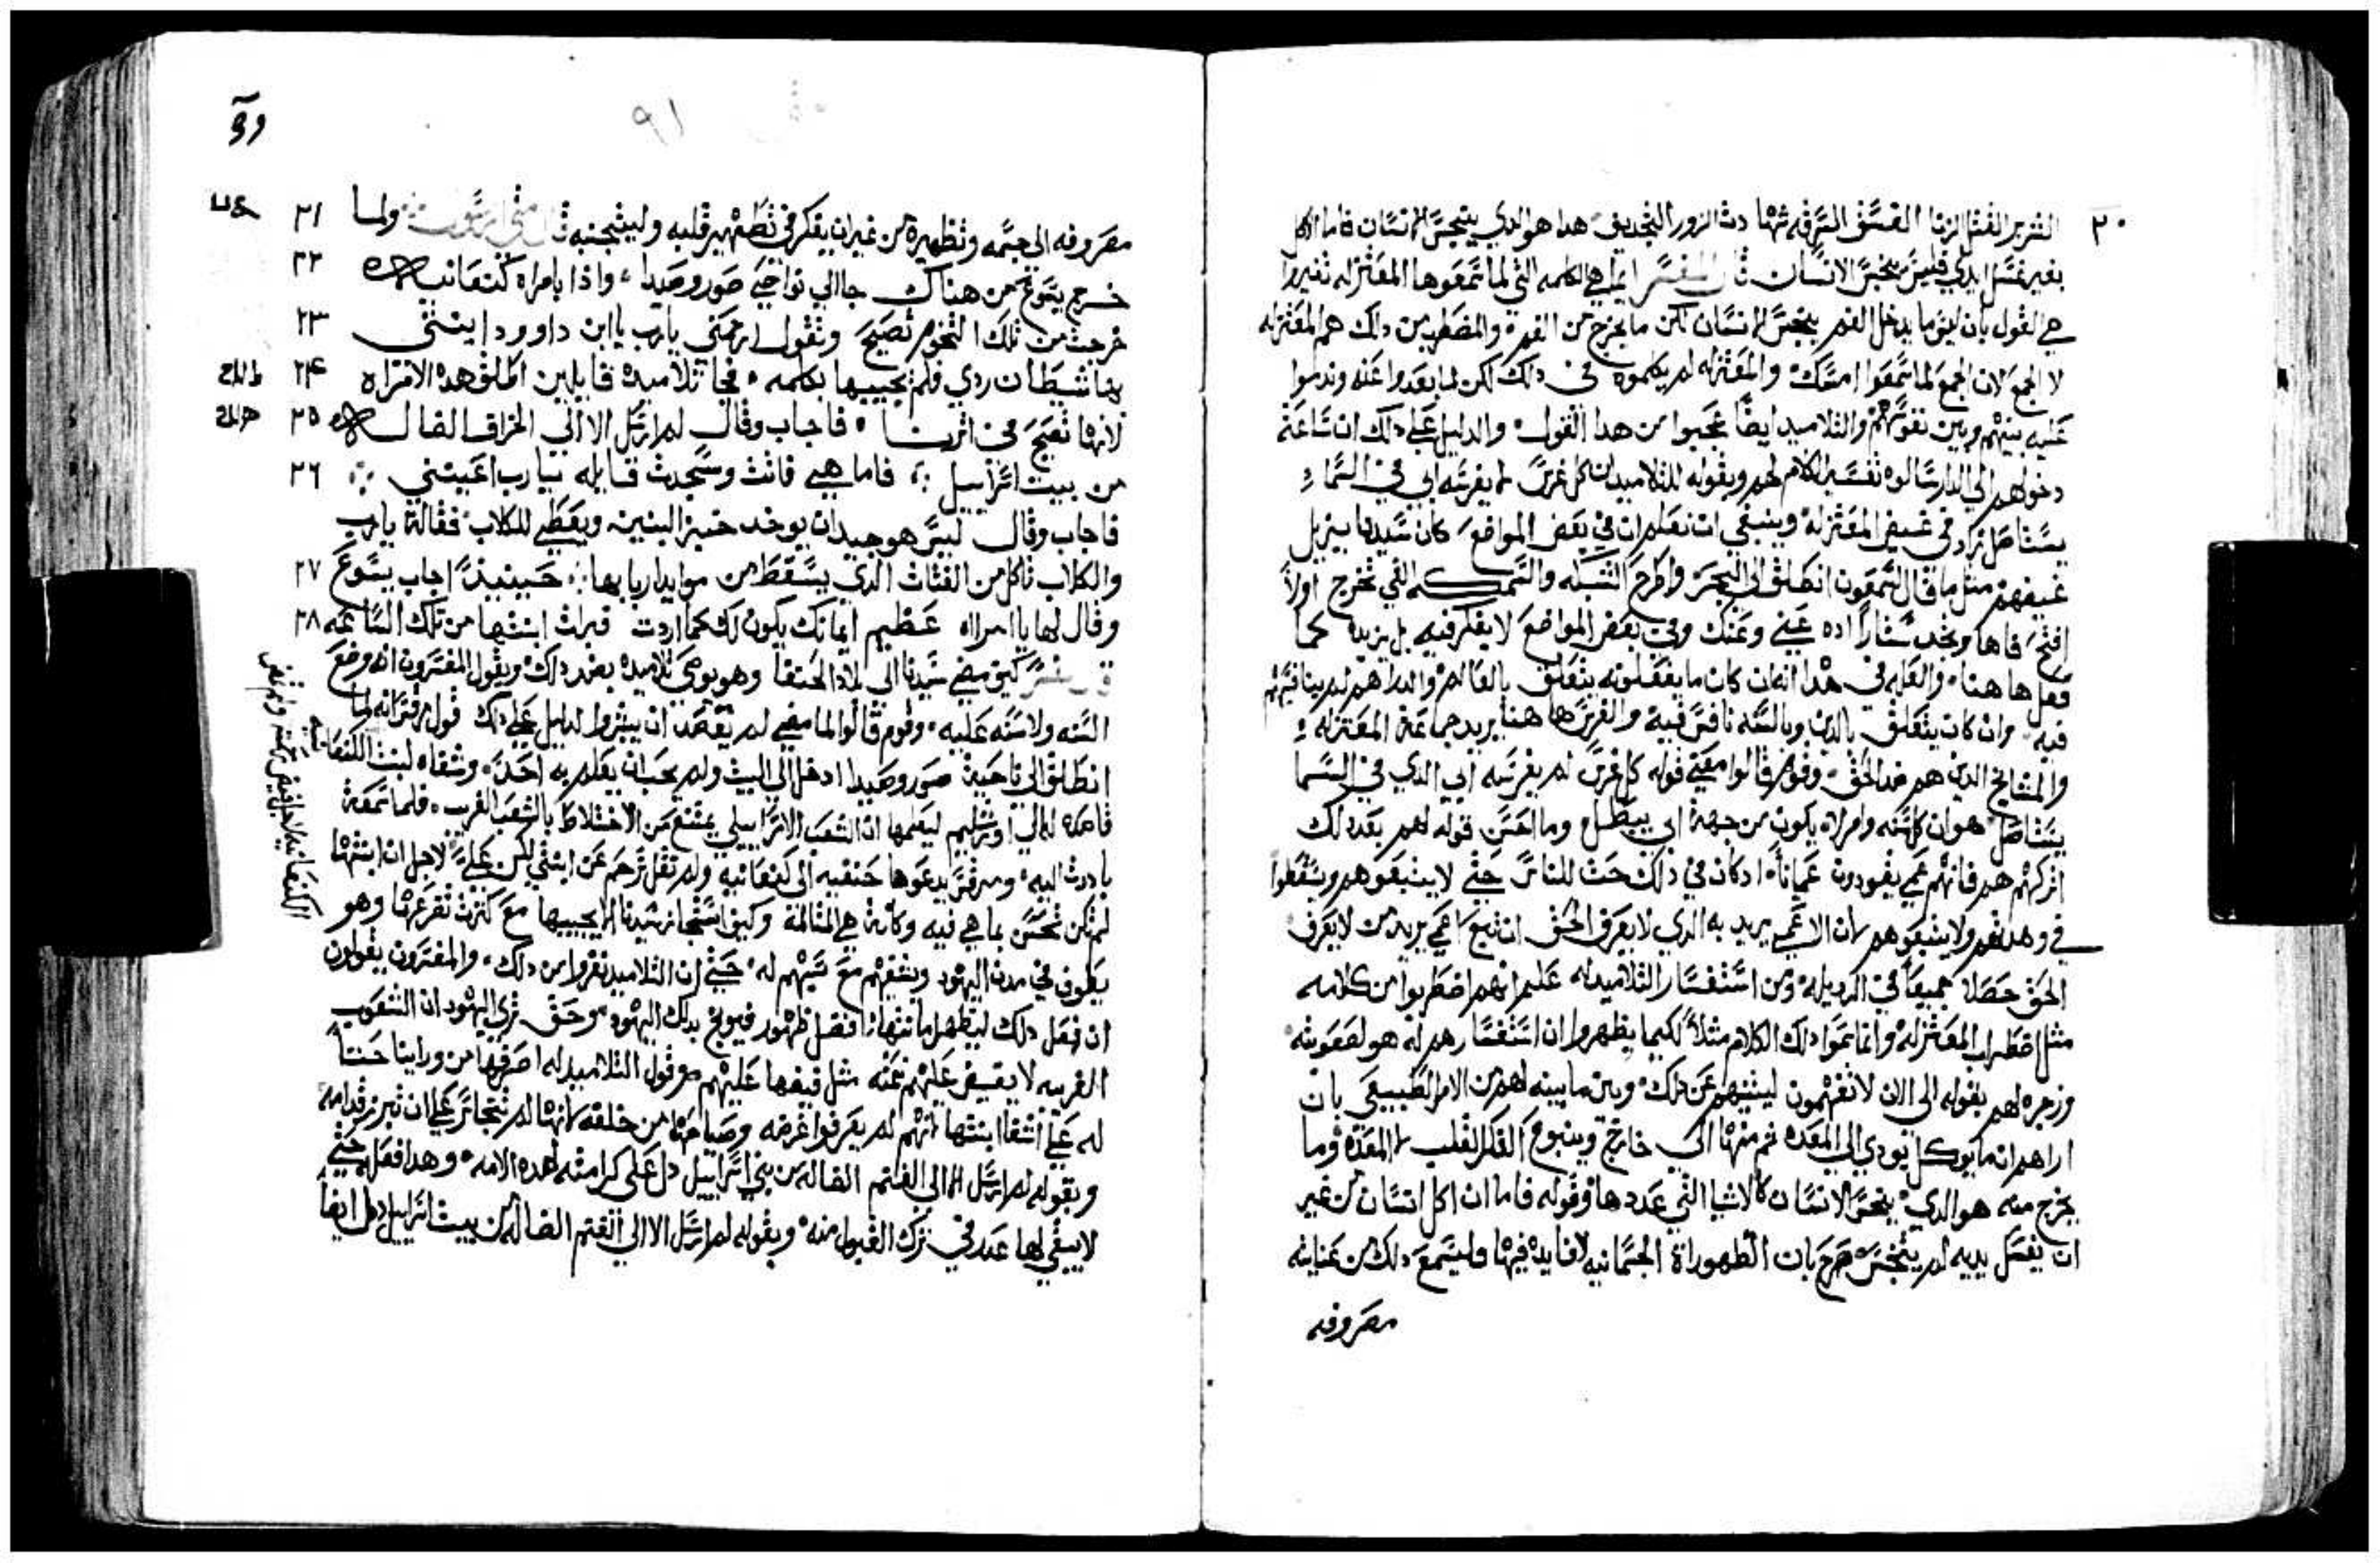 ٢٠
الشرير القتل الزنا الفسق السرقه شهادت الزور التجديف هدا هو الدي ينجس الانسان فاما الاكل
بغير غسل ايدي فليس ينجس الانسان قال المفسر انما هي الكلمه التي لما سمعوها المعتزله تغيروا
هي القول بان ليس ما يدخل الفم ينجس الانسان لكن ما يخرج من الفم والمضطربين من دلك هم المعتزله
لا الجمع لان الجمع لما سمعوا امسك والمعتزله لم يكلموه في دلك لكن لما بعدوا عنه وندموا
عليه بينهم وبين نفوسهم والتلاميد ايضا عجبوا من هدا القول والدليل على دلك ان ساعة
دخولهم الي الدار سالوه تفسير الكلام لهم وبقوله للتلاميد ان كل غرس لم يغرسه ابي في السماء
يستاصل زاد في غيض المعتزله وينبغي ان نعلم ان في بعض المواضع كان سيدنا يزيل
غيضهم مثل ما قال لشمعون انطلق الى البحر واطرح الشبكه والسمكه التي تخرج اولاً
افتح فاها وتجد ستارا اده عني وعنك وفي بعض المواضع لا يفكر فيه بل يزيد كما
فعل هاهنا والعله في هدا انه ان كان ما يفعلونه يتعلق بالعالم والدراهم لم يناقسهم
فيه وان كان يتعلق بالدين وبالسنه نافس فيه والغرس هاهنا يريد جماعة المعتزله
والمشايخ الدين هم ضد الحق وقوم قالوا معني قوله كل غرس لم يغرسه ابي الدي في السما
يستاصل هو ان كل سنه وامر لا يكون من جهة ابي يبطل وما احسن قوله لهم بعد دلك
اتركهم هم فانهم عمي يقودون عمياناً ادكان في دلك حث للناس حتي لا يتبعوهم ويسقطوا
في وهدتهم ولا يتبعوهم لان الاعمي يريد به الدي لا يعرف الحق ان تبع اعمي يريد من لا يعرف
الحق حصلا جميعاً في الرديله ومن استفسار التلاميد له علم انهم اضطربوا من كلامه
مثل اضطراب المعتزله وانما سموا دلك الكلام مثلاً لكيما يظهروا ان استفسارهم له هو لصعوبته
وزجره لهم بقوله الى الان لا تفهمون لينبههم عن دلك وبين ما بينه لهم من الامر الطبيعي بان
اراهم ان ما يوكل يودي الي المعده ثم منها الى خارج وينبوع الفكر القلب لا المعدة وما
يخرج منه هو الدي ينجس الانسان كالاشيا التي عددها وقوله فاما ان اكل انسان من غير
ان يغسل يديه لم يتنجس صرح بان الطهوراة الجسمانيه لا فايدة فيها وليسمع دلك من عنايته
مصروفه
٩١
مصروفه الى جسمه وتطهيره من غير ان يفكر في تطهير قلبه وليتجنبه قال متى الرسول ولما ٢١
خرج يسوع من هناك جا الي نواحي صور وصيدا واذا بامراه كنعانيه ٢٢
خرجت من تلك التخوم تصيح وتقول ارحمني يارب يا ابن داوود ابنتي ٢٣
بها شيطان ردي فلم يجيبها بكلمه فجا تلاميده قايلين اطلق هده الامراه ٢٤
لانها تصيح في اثرنا فاجاب وقال لم ارسل الا الي الخراف الضاله ٢٥
من بيت اسراييل فاما هي فاتت وسجدت قايله يا رب اعينني ٢٦
فاجاب وقال ليس هو جيد ان يوخد خبز البنين ويعطي للكلاب فقالة يارب
والكلاب تاكل من الفتات الدي يسقط من موايد اربابها حينيذ اجاب يسوع ٢٧
وقال لها يا امراه عظيم ايمانك يكون لك كما اردت فبرات ابنتها من تلك الساعه ٢٨
قال المفسر كيف مضي سيدنا الي بلاد الحنفا وهو يوصي تلاميده بضد دلك ويقول المفسرون انه وضع
السنه ولا سنه عليه وقوم قالوا لما مضي لم يقصد ان يبشر والدليل على دلك قول مرقس انه لما
انطلق الي ناحية صور وصيدا ادخل الي البيت ولم يحب ان يعلم به احد وشفاه لبنت الكنعانيه
فلما سمعة
بادرت اليه ومرقس يدعوها حنفيه لا كنعانيه ولم تقل ترحم عن ابنتي لكن علي لاجل ان ابنتها
لم تكن تحس بما هي فيه وكانة هي المتالمة وكيف استجاز سيدنا الا يجيبها مع كثرت تضرعها وهو
يطوف في مدن اليهود ويشفيهم مع شتمهم له حتي ان التلاميد نفروا من دلك والمفسرون يقولون
ان فعل دلك ليظهر امانتها افضل ظهور فيوبخ بدلك اليهود
له عن اشفا ابنتها لانهم لم يعرفوا غرضه وصياحها من خلفه لانها لم تتجاسر علي ان تبرز قدامه
وبقوله لم ارسل الا الي الغنم الضاله من بني اسراييل دل على كرامته لهده الامه وهدا فعله حتي
لا يبقي لها عدر في ترك القبول منه وبقوله لم ارسل الا الي الغنم الضاله من بيت اسراييل دل ايضاً